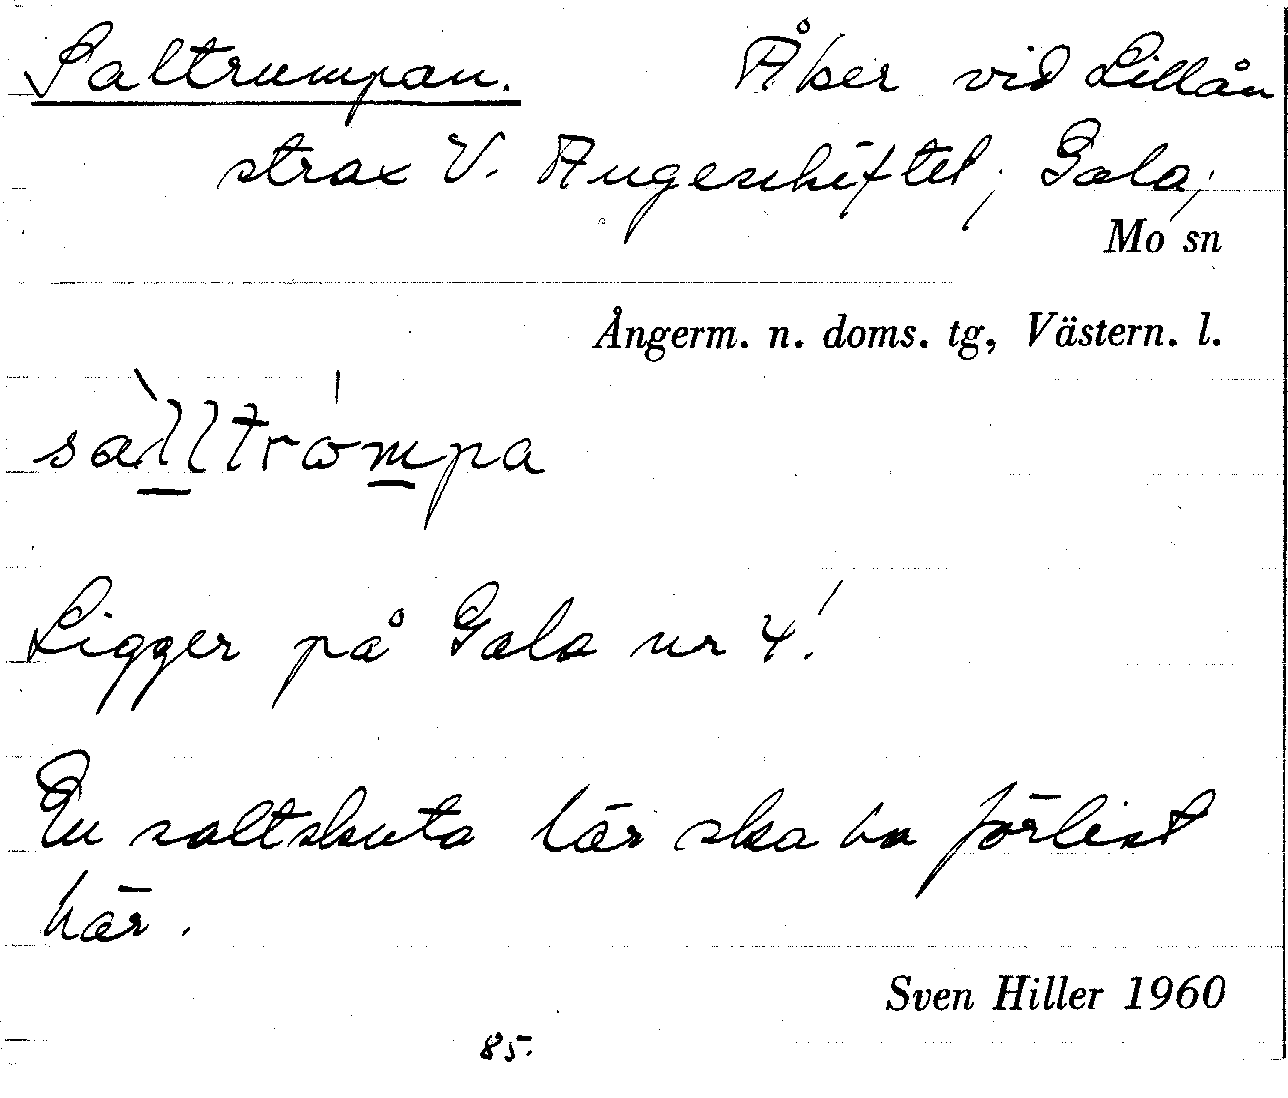 Saltrumpan. Åker vid Lillån
strax V. Angeskiftet, Gala,
Mo sn
Ångerm. n. doms. tg, Västern. l.
sàlltrómpa
Ligger på Gala nr 4!
En saltskuta lär ska ha förlist
här.
Sven Hiller 1960
85.